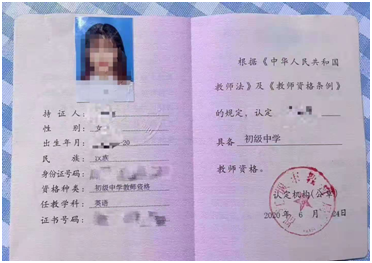 持证人:
性 别: 女
出生年月: 20
民 族: 汉族
身份证号码:
资格种类: 初级中学教师资格
任教学科: 英语
证书号码:
根据《中华人民共和国
教师法》及《教师资格条例》
的规定，认定
具备 初级中学
教师资格。
认定机构(公章)
2020 年 6 月 24日